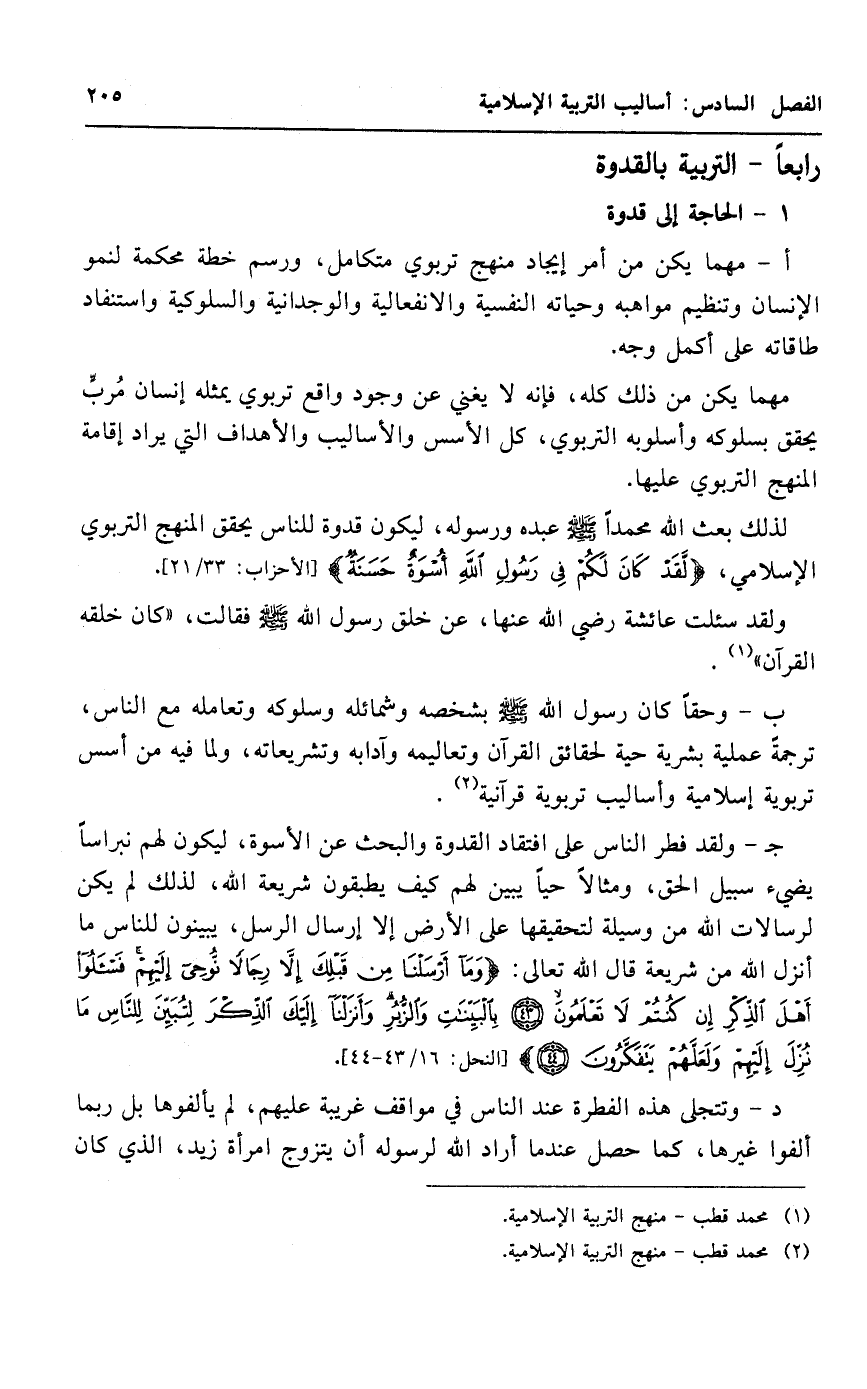 الفصل السادس: أساليب التربية الإسلامية ٢٠٥
رابعاً - التربية بالقدوة
١ - الحاجة إلى قدوة
أ - مهما يكن من أمر إيجاد منهج تربوي متكامل، ورسم خطة محكمة لنمو
الإنسان وتنظيم مواهبه وحياته النفسية والانفعالية والوجدانية والسلوكية واستنفاد
طاقاته على أكمل وجه.
مهما يكن من ذلك كله، فإنه لا يغني عن وجود واقع تربوي يمثله إنسان مُربٍّ
يحقق بسلوكه وأسلوبه التربوي، كل الأسس والأساليب والأهداف التي يراد إقامة
المنهج التربوي عليها.
لذلك بعث الله محمداً ﷺ عبده ورسوله، ليكون قدوة للناس يحقق المنهج التربوي
الإسلامي، ﴿لَّقَدْ كَانَ لَكُمْ فِي رَسُولِ ٱللَّهِ أُسْوَةٌ حَسَنَةٌ﴾ [الأحزاب: ٢١/٣٣].
ولقد سئلت عائشة رضي الله عنها، عن خلق رسول الله ﷺ فقالت، «كان خلقه
القرآن»(١) .
ب - وحقاً كان رسول الله ﷺ بشخصه وشمائله وسلوكه وتعامله مع الناس،
ترجمةً عملية بشرية حية لحقائق القرآن وتعاليمه وآدابه وتشريعاته، ولما فيه من أسس
تربوية إسلامية وأساليب تربوية قرآنية(٢) .
جـ - ولقد فطر الناس على افتقاد القدوة والبحث عن الأسوة، ليكون لهم نبراساً
يضيء سبيل الحق، ومثالاً حياً يبين لهم كيف يطبقون شريعة الله، لذلك لم يكن
لرسالات الله من وسيلة لتحقيقها على الأرض إلا إرسال الرسل، يبينون للناس ما
أنزل الله من شريعة قال الله تعالى: ﴿وَمَآ أَرْسَلْنَا مِن قَبْلِكَ إِلَّا رِجَالًا نُّوحِىٓ إِلَيْهِمْ ۚ فَسْـَٔلُوٓا۟
أَهْلَ ٱلذِّكْرِ إِن كُنتُمْ لَا تَعْلَمُونَ ۙ ﴿٤٣﴾ بِٱلْبَيِّنَٰتِ وَٱلزُّبُرِ ۗ وَأَنزَلْنَآ إِلَيْكَ ٱلذِّكْرَ لِتُبَيِّنَ لِلنَّاسِ مَا
نُزِّلَ إِلَيْهِمْ وَلَعَلَّهُمْ يَتَفَكَّرُونَ ﴿٤٤﴾﴾ [النحل: ٤٣/١٦-٤٤].
د - وتتجلى هذه الفطرة عند الناس في مواقف غريبة عليهم، لم يألفوها بل ربما
ألفوا غيرها، كما حصل عندما أراد الله لرسوله أن يتزوج امرأة زيد، الذي كان
(١) محمد قطب - منهج التربية الإسلامية.
(٢) محمد قطب - منهج التربية الإسلامية.